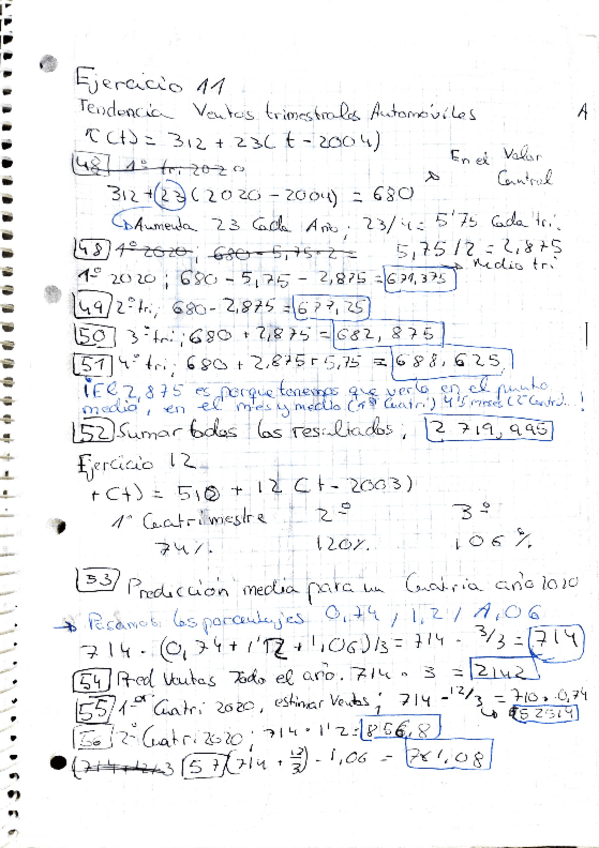 Ejercicio 11
Tendencia Ventas trimestrales Automóviles A
T(t) = 312 + 23(t - 2004)
48 1º tri 2020
En el Valor
Central
312 + 23 (2020 - 2004) = 680
Aumenta 23 Cada Año; 23/4 = 5'75 Cada tri.
48 1º 2020; 680 - 5,75 - 2 = 5,75/2 = 2,875
Medio tri
1º 2020; 680 - 5,75 - 2,875 = 671,375
49 2º tri, 680 - 2,875 = 677,25
50 3º tri; 680 + 2,875 = 682,875
51 4º tri; 680 + 2,875 + 5,75 = 688,625
¡El 2,875 es porque tenemos que verlo en el punto
medio, en el mes y medio (1º Cuatri) 4'5 meses (2º !
52 Sumar todos los resultados; 2719,995
Ejercicio 12
t(t) = 510 + 12 (t - 2003)
1º Cuatrimestre 2º 3º
74%. 120%. 106%
53 Predicción media para un Cuatri año 2020
Pasamos los porcentajes 0,74 / 1,2 / 1,06
714 · (0,74 + 1'12 + 1,06)/3 = 714 · 3/3 = 714
54 Pred Ventas Todo el año. 714 · 3 = 2142
55 1er Cuatri 2020, estimar Ventas; 714 - 12/3 = 710 · 0,74
525,4
56 2º Cuatri 2020; 714 · 1'2 = 856,8
(714 + 12/3 57 (714 + 12/3) · 1,06 = 761,08